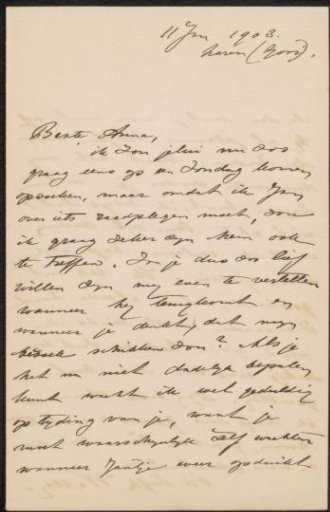 11 Jan 1903.
Laren (Gooi).
Beste Anna,
ik zou jelui nu zoo
graag eens op en Zondag komen
opzoeken, maar omdat ik Jan
over iets raadplegen moet, zou
ik graag zeker zyn hem ook
te treffen. Zou je dus zoo lief
willen zyn my even te vertellen
wanneer hy terugkomt en
wanneer je denkt, dat myn
bezoek schikken zou? Als je
het nu niet dadelyk bepalen
kunt wacht ik wel geduldig
op tyding van je, want je
moet waarschynlyk zelf wachten
wanneer Jantje weer opduikt